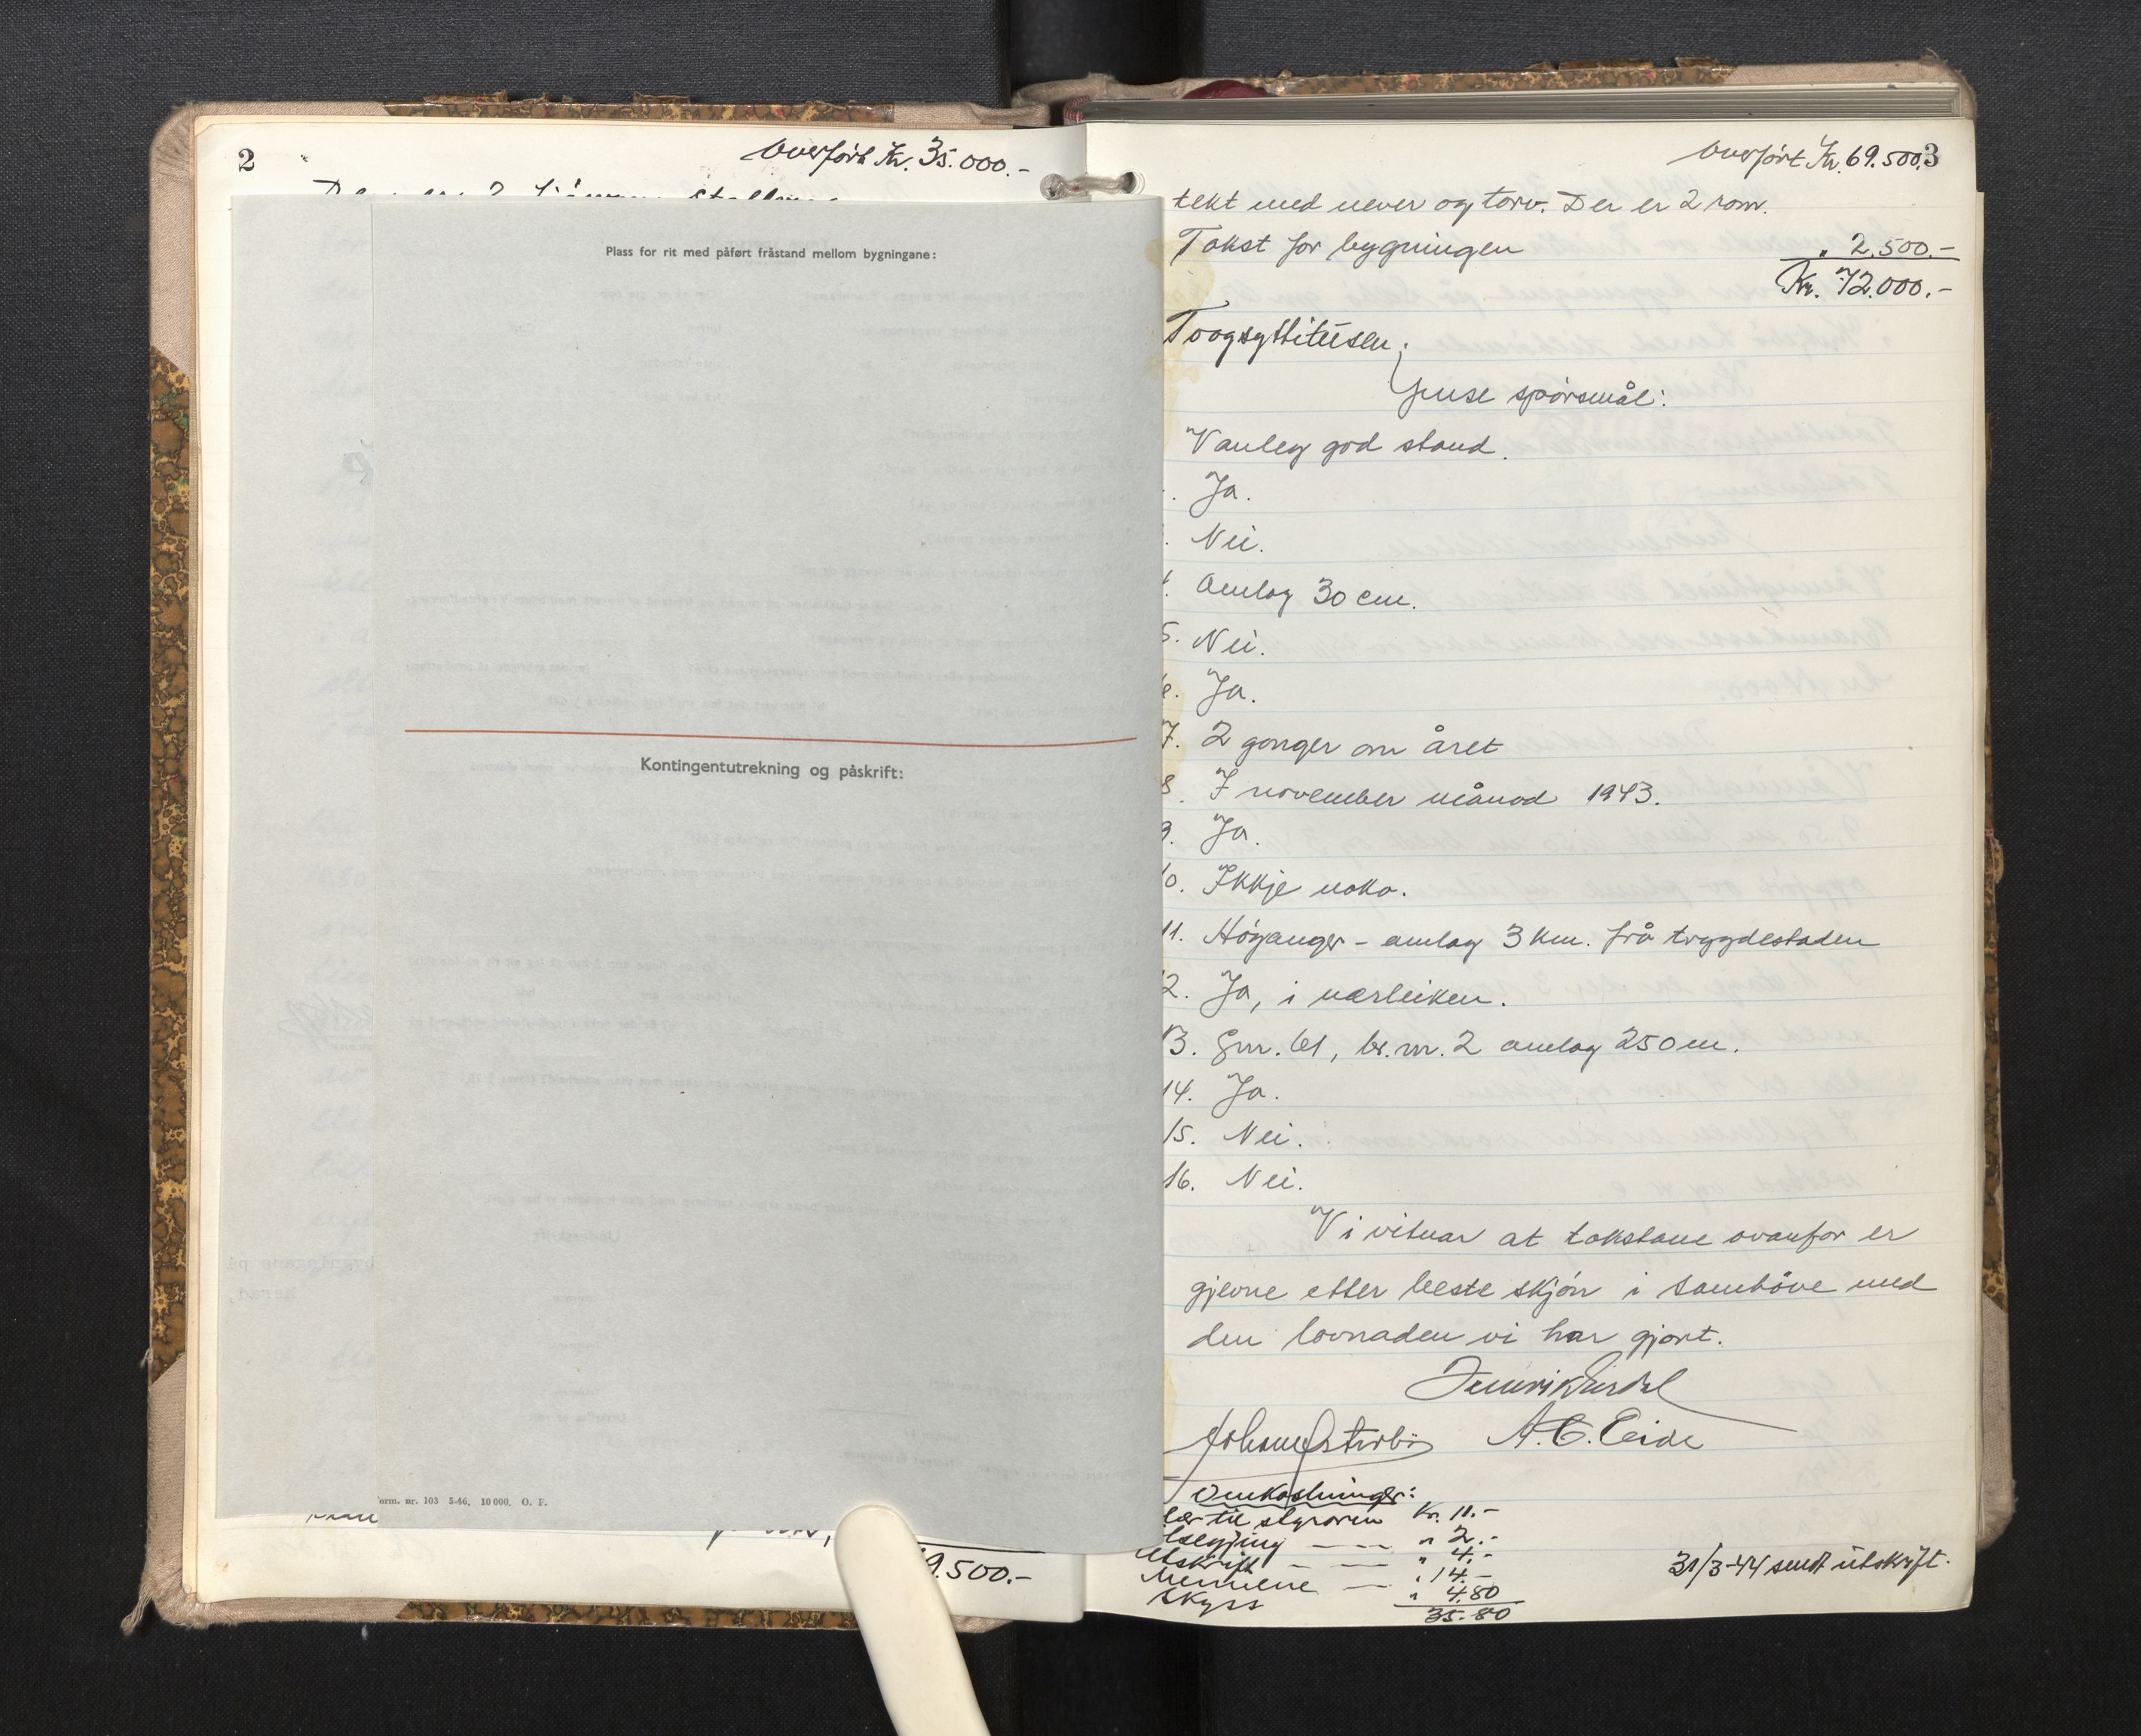 2
Overført Kr. 35.000.-
Plass for rit med påført fråstand mellom bygningane:
Kontingentutrekning og påskrift:
orm. nr. 103 5-46. 10 000. O. F.
9.500.-
Overført Kr. 69.500.
3
tekt med never og torv. Der er 2 rom.
Takst for bygningen " 2.500.-
Kr. 72.000.-
Toogsyttitusen.
Ymse spørsmål:
Vanleg god stand.
. Ja.
. Nei.
4. Omlag 30 cm.
5. Nei.
6. Ja.
7. 2 gonger om året
8. I november månad 1943.
9. Ja.
10. Ikkje noko.
11. Høyanger - omlag 3 km. frå trygdestaden
2. Ja, i nærleiken.
13. Gnr. 61, br.nr. 2 omlag 250 m.
14. Ja.
15. Nei.
16. Nei.
Vi vitnar at takstane ovanfor er
gjevne etter beste skjøn i samhøve med
den lovnaden vi har gjort.
A. C. Eide
Omkostninger:
til styraren Kr. 11.-
" 2.-
Utskrift " 4.-
Mennene " 14.-
Skyss " 4.80
35.80
31/3-44 sendt utskrift.